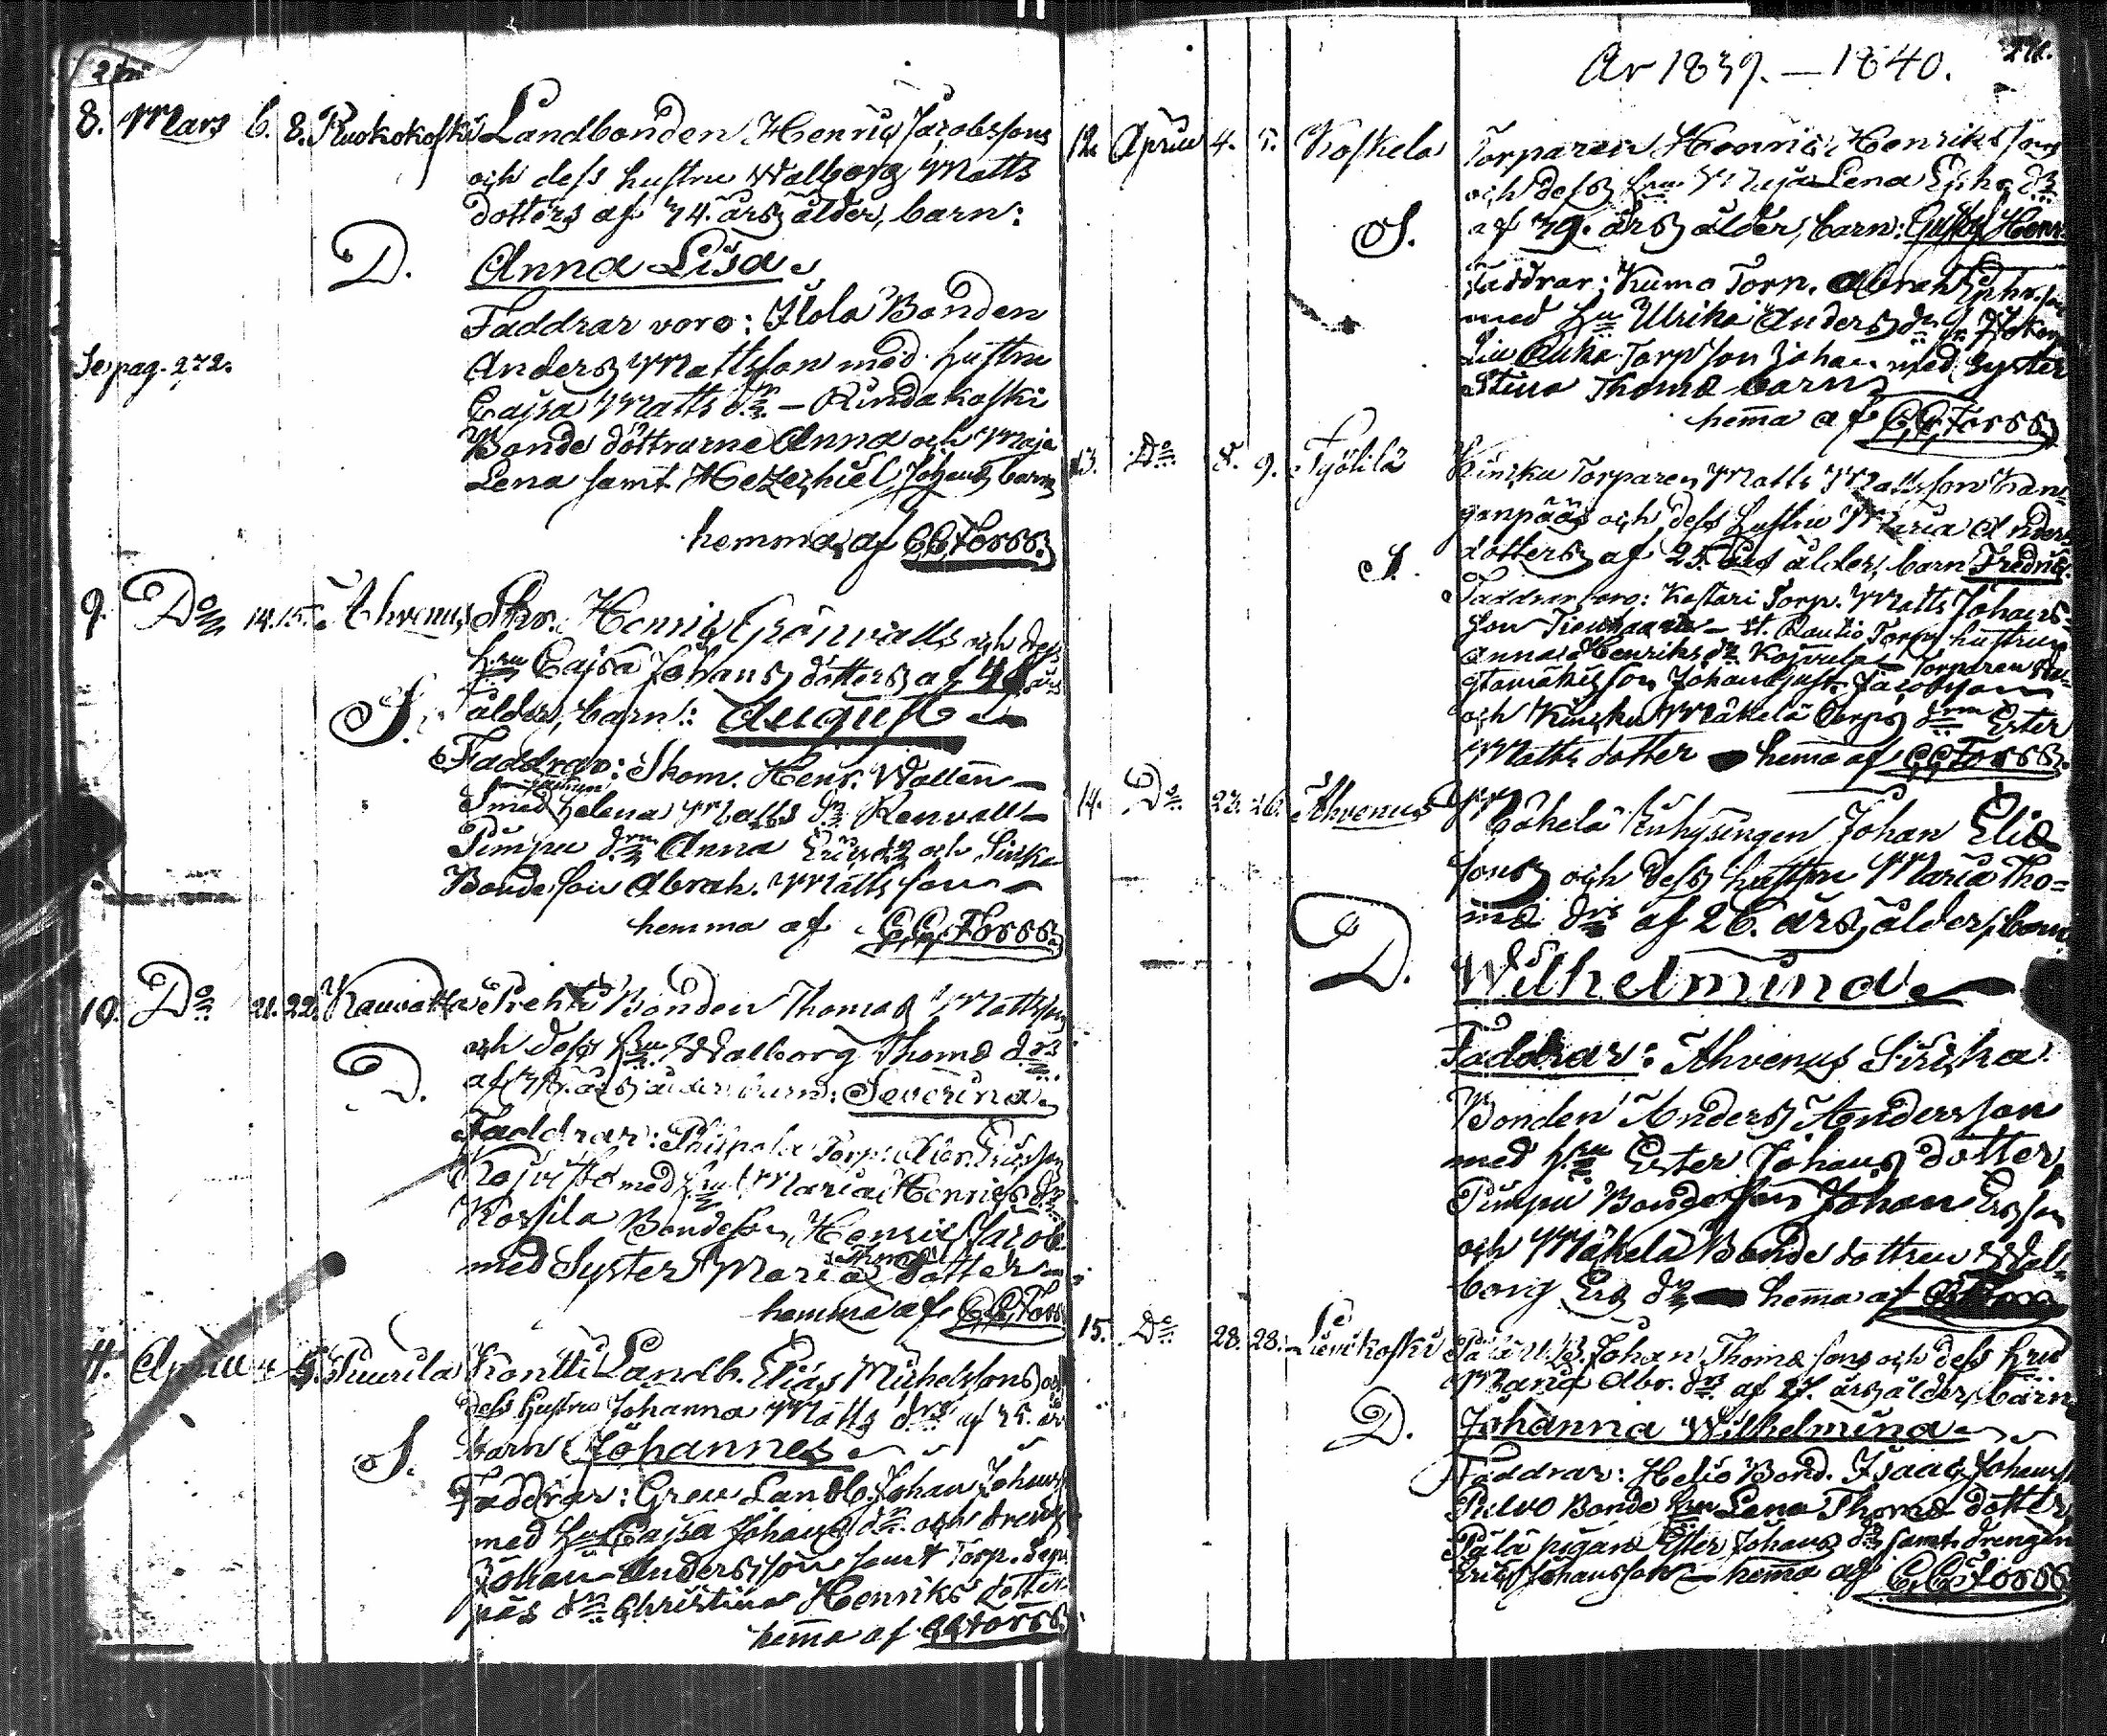 8. Mars 6. 8. Ruokokoski Landbonden Henric Jacobssons
och dess hustru Walborg Matts
dotters af 34. års ålder, barn:
D. Anna Lisa
Faddrar voro: Flola Bonden
Anders Mattsson med hustru
Se pag. 272.
Cajsa Matts dr – Rindakoski
Bonde döttrarne Anna och Maja
Lena samt Hezechiel Johans barn
hemma af C C Forss
9. Do 14. 15. Ahvenus Skr. Henric Grönvalls och dess
hru Cajsa Johans dotters af års
S. ålder, barn: August
Faddrar: Skom. Henr. Wallen
Smed Helena Matts dr Renvall
Pimpu drn Anna Erics dr och Sirika
Bonde son Abrah. Matts son
hemma af C C Forss
10. Do 21. 22. Kauvatsa Prehti Bonden Thomas Mattssons
och dess hru Walborg Thomæ drs
D. af års ålder barn: Severina
Faddrar: Torp: Abr. Ericsson
Kojvisto med hru Maria Henrics dr
Korsila Bondeson Henric Jacob
med Syster Maria Thomæ dotter
hemma af C C Forss
11. April 4 5. Puurila Kontti Landb. Elias Michelssons och
dess hustru Johanna Matts drs af 35. års
S. barn Johannes
Faddrar: Greu Landb. Johan Johanss
med hru Cajsa Johans dr och dreng
Johan Andersson samt Torp.
drn Christina Henriks dotter
hema af C C Forss
År 1839. — 1840. 271.
12. April 4. 5. Koskela Torparen Henric Henrikssons
och dess hru Maja Lena Ephr. drs
S. af 39. års ålder, barn: Gustaf Henr.
Faddrar: Kumo Torn. Abrah Ephr. son
med hru Ulrika Anders dr
Torp son Johan med Syster
Stina Thomæ barn
hema af C C Forss
13. Do 8. 9. Työlilä Torparen Matts Mattsson
och dess hustru Maria Anders
S. dotters af 25. års ålder, barn Fredric.
Faddrar voro: Kastari Torp. Matts Johans
son – St. Rautio Torp hustrun
Anna Henriks dr Kojvula – Torparen
son Johan Gust. Jacobsson
och Mäkelä Torps drn Ester
Matts dotter – hema af C C Forss
14. Do 23. 26. Ahvenus Mäkelä Inhysingen Johan Eliæ
sons och dess hustru Maria Tho=
D. mæ drs af 26. års ålder, barn
Wilhelmina
Faddrar: Ahvenus Sirika
Bonden Anders Andersson
med hru Ester Johans dotter,
Pimpu Bondeson Johan Ersson
och Mäkelä Bonde dottren Wal=
borg Ers dr hema af C C Forss
15. Do 28. 28. Lievikoski Pälä Johan Thomæ sons och dess hru
Maria Abr. drs af 27. års ålder, barn
D. Johanna Wilhelmina
Faddrar: Helio Bond. Isaac Johanss
Pulvo Bonde hru Lena Thomæ dotter
Pälä pigan Ester Johans dr samt drengen
Eric Johansson – hema af C C Forss